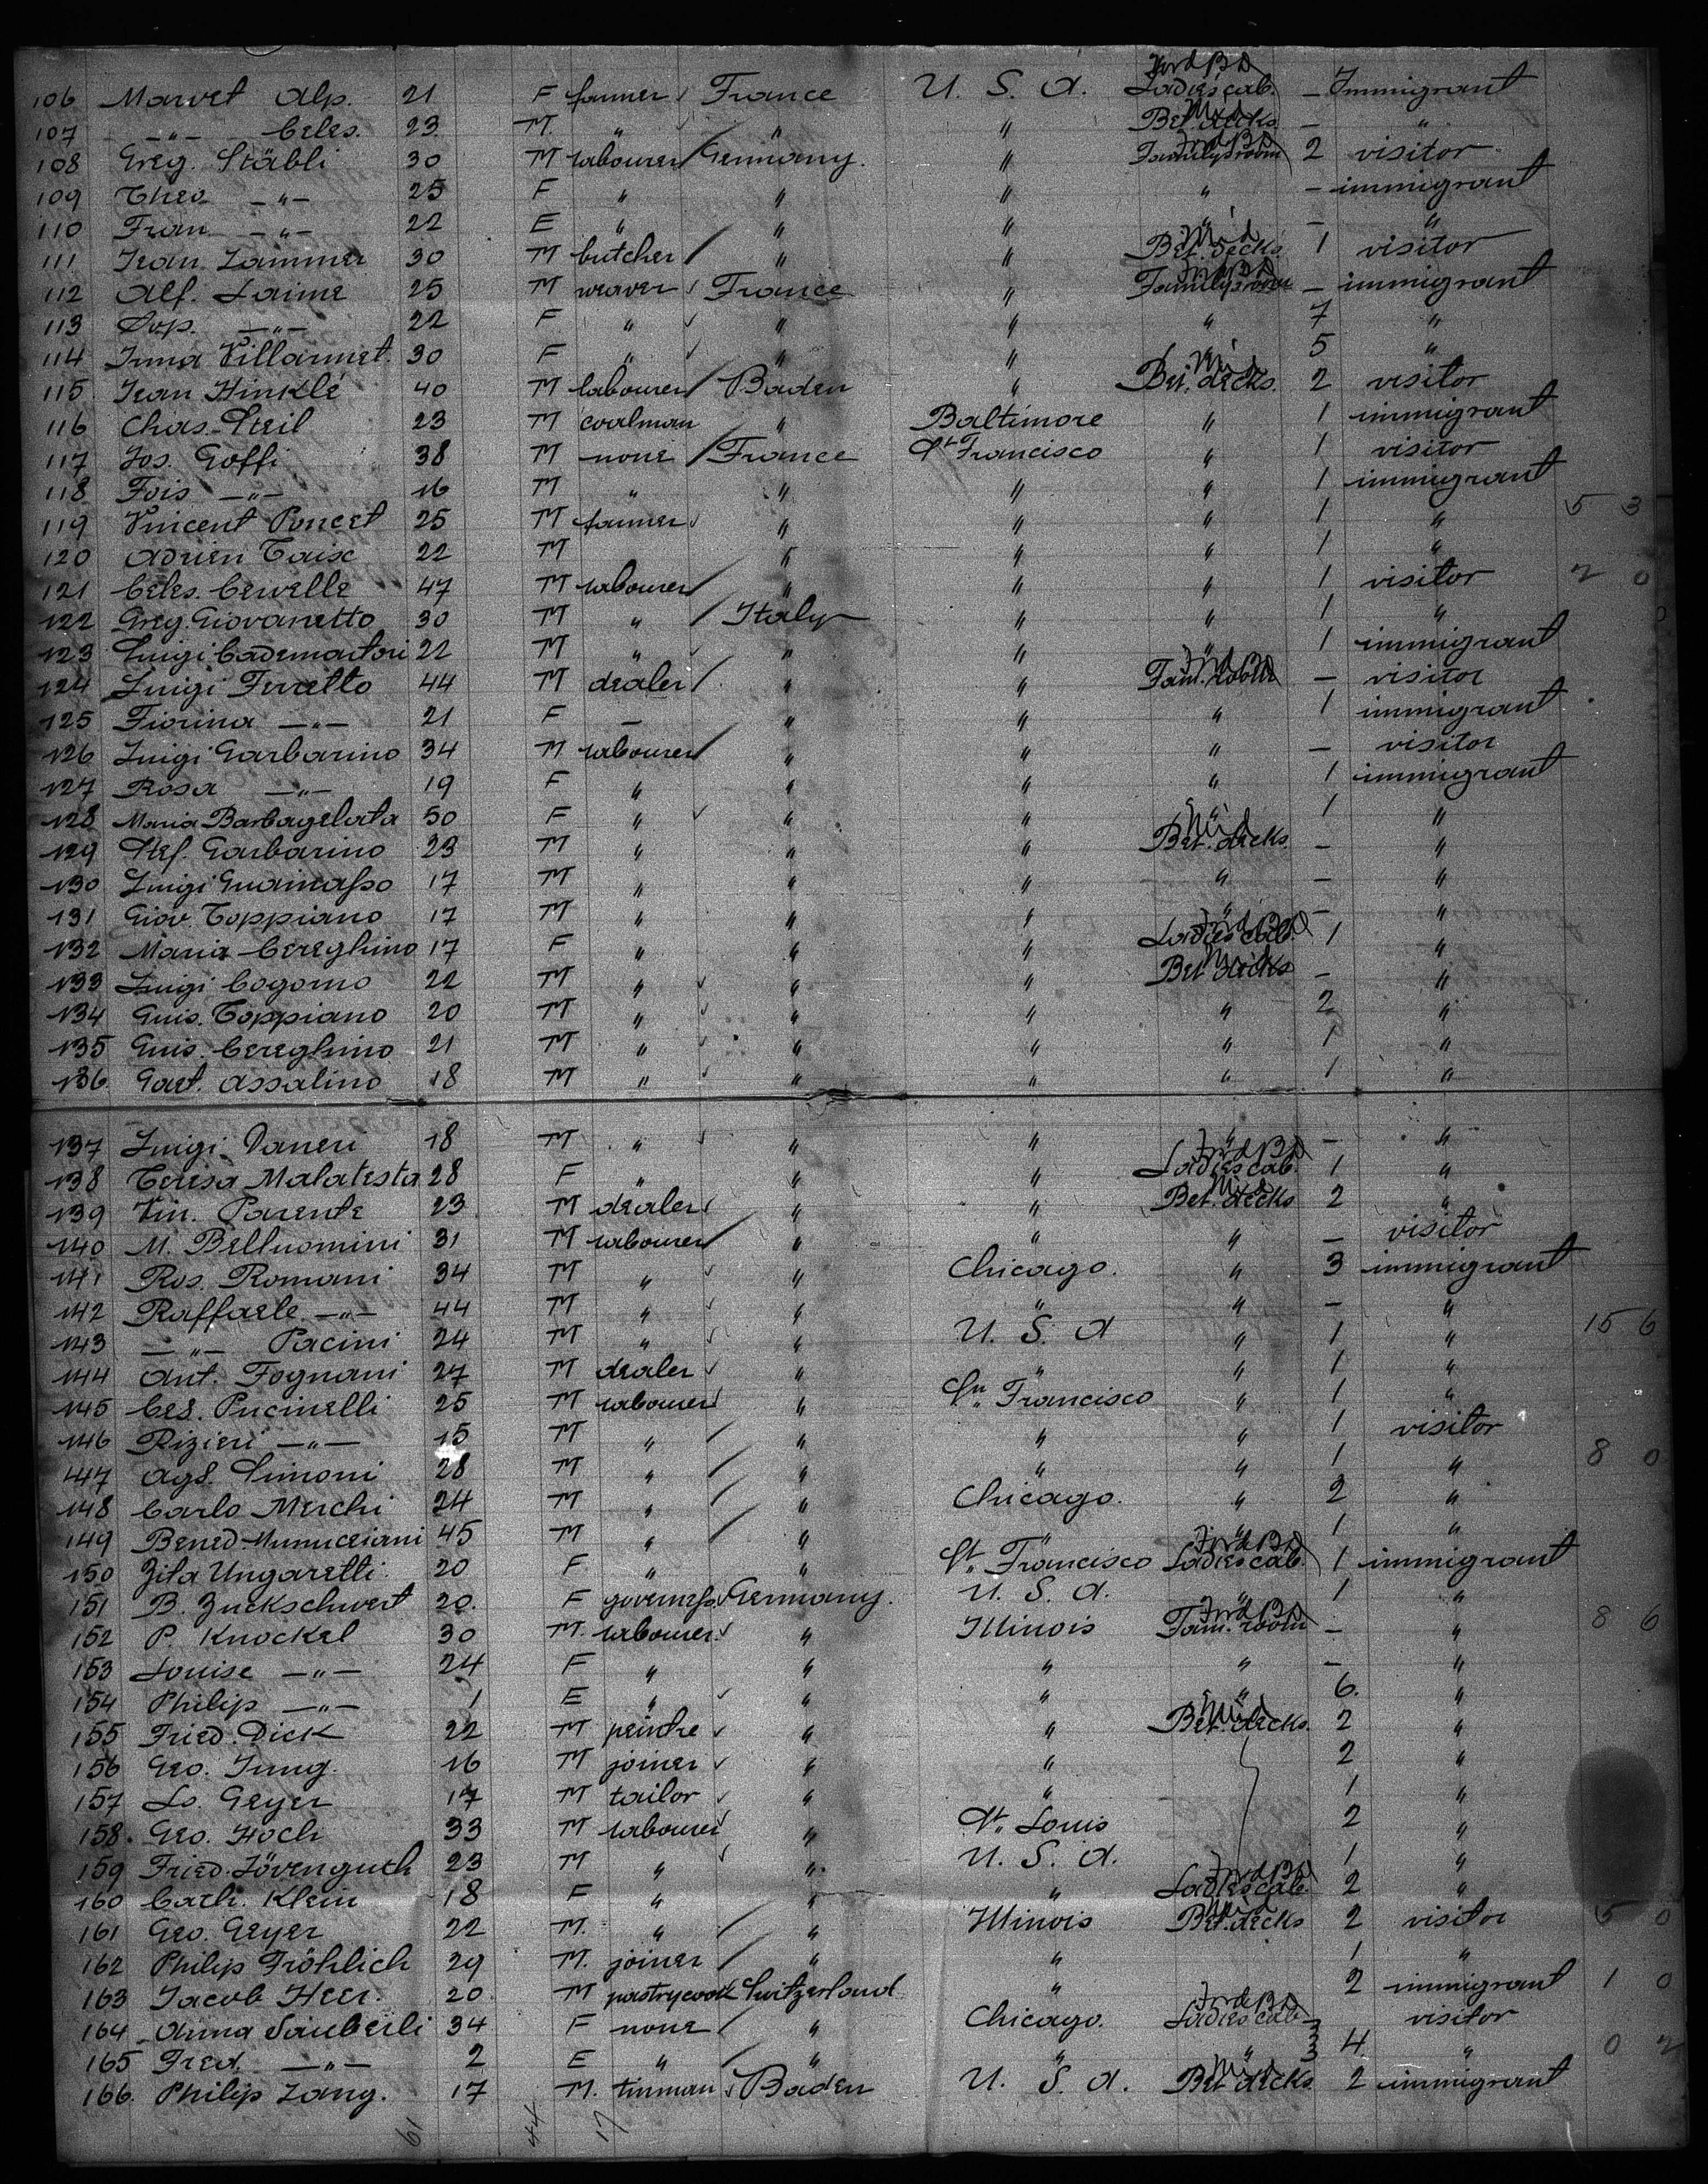 106 Marvet Alp. 21 F farmer France U. S. A. Ladies cab. Fwd BD — Immigrant
107 —"— Celes. 23 M. " " " Bet. decks Mid — "
108 Greg. Stäbli 30 M labourer Germany. " Familysroom Fwd BD 2 visitor
109 Theo —"— 25 F " " " " — immigrant
110 Fran. —"— 22 E " " " " — "
111 Jean Zammer 30 M butcher " " Bet. decks Mid 1 visitor
112 Alf. Laime 25 M weaver France " Familysroom Fwd BD — immigrant
113 —"— 22 F " " " " 7 "
114 Irma Villaumet. 30 F " " " " 5 "
115 Jean Hinklé 40 M labourer Baden " Bet. decks. Mid 2 visitor
116 Chas. Steil 23 M coalman " Baltimore " 1 immigrant
117 Jos. Goffi 38 M none France St Francisco " 1 visitor
118 Fois —"— 16 M " " " " 1 immigrant
119 Vincent Poncet 25 M farmer " " " 1 " 5 3
120 Adrien Taix 22 M " " " 1 "
121 Celes. Cewelle 47 M labourer " " " 1 visitor 2 0
122 Greg. Giovanetto 30 M " Italy " " 1 "
123 Luigi Cademartori 22 M " " " " 1 immigrant
124 Luigi Ferretto 44 M dealer " " Fam. room Fwd BD — visitor
125 Fiorina —"— 21 F — " " " 1 immigrant
126 Luigi Garbarino 34 M labourer " " " — visitor
127 Rosa —"— 19 F " " " " 1 immigrant
128 Maria Barbagelata 50 F " " " " 1 "
129 Stef. Garbarino 23 M " " " Bet. decks. Mid — "
130 Luigi Guainasso 17 M " " " " — "
131 Giov. Toppiano 17 M " " " " — "
132 Maria Cereghino 17 F " " " Ladies cab. Fwd BD 1 "
133 Luigi Cogorno 22 M " " " Bet. decks Mid — "
134 Guis. Toppiano 20 M " " " " 2 "
135 Guis. Cereghino 21 M " " " " 1 "
136 Gaet. Assalino 18 M " " " " 1 "
137 Luigi Daneri 18 M " " " " — "
138 Teresa Malatesta 28 F " " " Ladies cab. Fwd BD 1 "
139 Vin. Parente 23 M dealer " " Bet. decks Mid 2 "
140 M. Belluomini 31 M labourer " " " — visitor
141 Ros. Romani 34 M " " Chicago. " 3 immigrant
142 Raffaele —"— 44 M " " " " — "
143 —"— Pacini 24 M " " U. S. A " 1 " 15 6
144 Ant. Fognani 27 M dealer " " " 1 "
145 Ces. Pucinelli 25 M labourer " Sn Francisco " 1 "
146 Rizieri —"— 15 M " " " " 1 visitor
147 Ags. Simoni 28 M " " " " 1 " 8 0
148 Carlo Merchi 24 M " " Chicago. " 2 "
149 Bened. 45 M " " " " 1 "
150 Zita Ungaretti 20 F " " St Francisco Ladies cab. Fwd BD 1 immigrant
151 B. Zuckschwert 20. F governess Germany. U. S. A. " 1 "
152 P. Knockel 30 M. labourer " Illinois Fam. room Fwd BD — " 8 6
153 Louise —"— 24 F " " " " — "
154 Philip —"— 1 E " " " " 6. "
155 Fried. Dick 22 M peintre " " Bet. decks. Mid 2 "
156 Geo. Jung. 16 M joiner " " 2 "
157 Lo. Geyer 17 M tailor " " 1 "
158. Geo. Hoch 33 M labourer " St. Louis 2 "
159 Fried. Jövenguth 23 M " " U. S. A. 1 "
160 Cath. Klein 18 F " " " Ladies cab. Fwd BD 2 "
161 Geo. Geyer 22 M. " " Illinois Bet. decks Mid 2 visitor 5 0
162 Philip Fröhlich 29 M. joiner " " 1 "
163 Jacob Heer. 20. M pastrycook Switzerland " 2 immigrant 1 0
164 Anna Säuberli 34 F none " Chicago. Ladies cab Fwd BD 3 visitor
165 Fred. —"— 2 E " " " " 3 4. " 0 2
166. Philip Zang. 17 M. tinman Baden U. S. A. Bet decks. Mid 2 immigrant
61 44 17